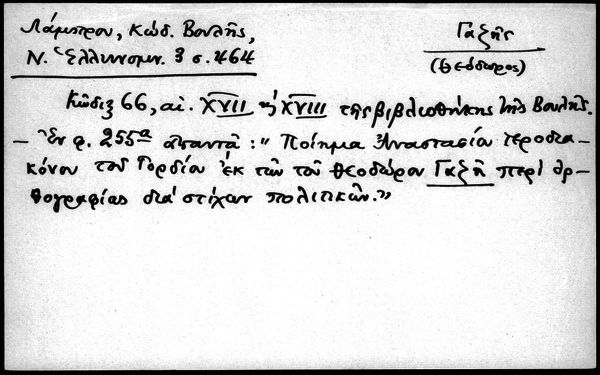 Λάμπρου, Κώδ. Βουλῆς,
Ν. Ἑλληνομν. 3 σ. 464
Γαζῆς
(Θεόδωρος)
Κῶδιξ 66, αἰ. XVII ἢ XVIII τῆς βιβλιοθήκης τῆς Βουλῆς.
— Ἐν φ. 255α ἀπαντᾷ: "Ποίημα Ἀναστασίου ἱεροδια-
κόνου τοῦ Γορδίου ἐκ τῶν τοῦ Θεοδώρου Γαζῆ περὶ ὀρ-
θογραφίας διὰ στίχων πολιτικῶν."